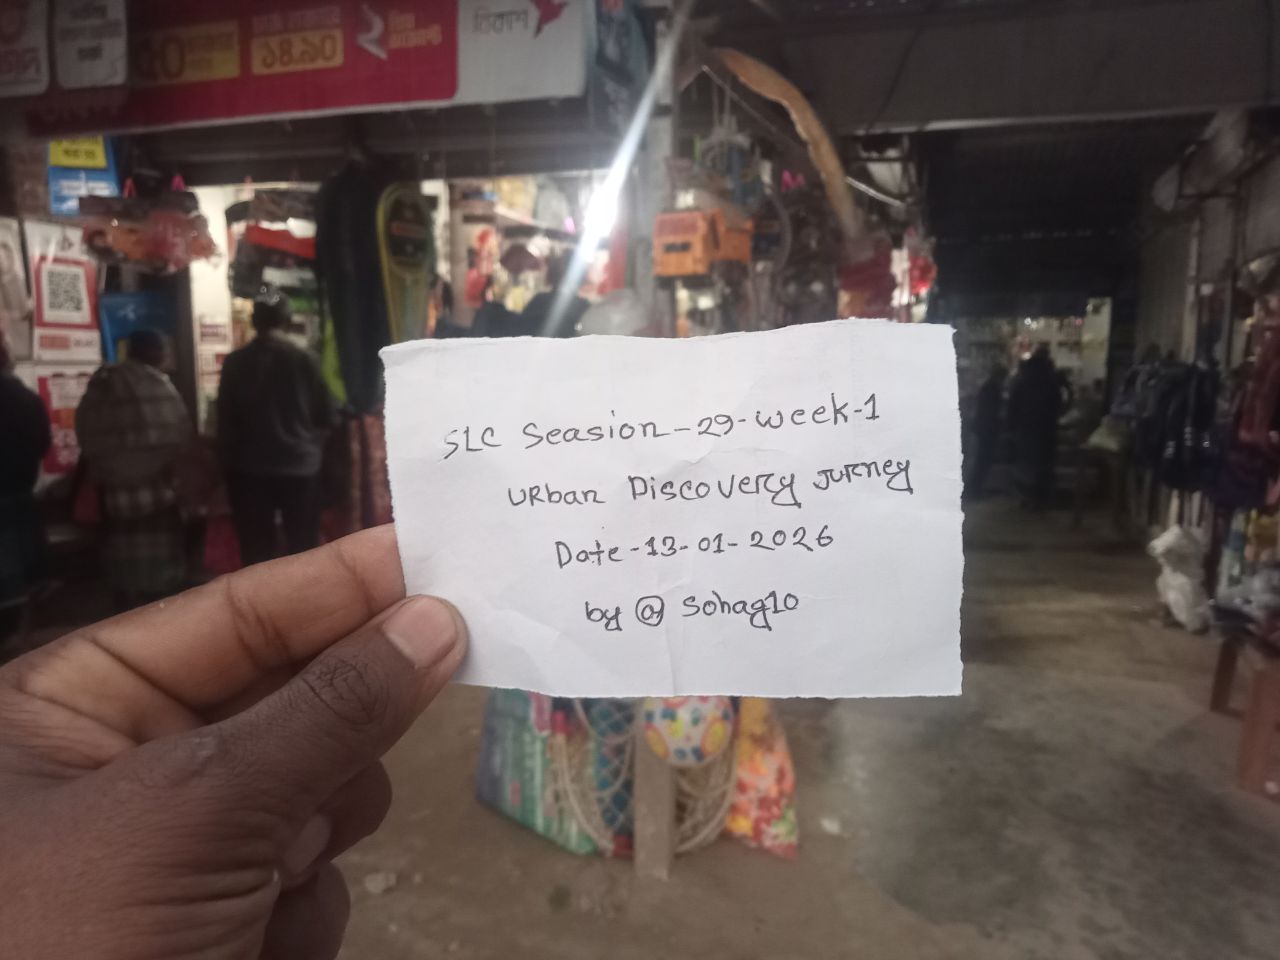 ১৪.৯০
বিকাশ
SLC Seasion-29-week-1
URban Discovery Jurney
Date-13-01-2026
by @ Sohag10